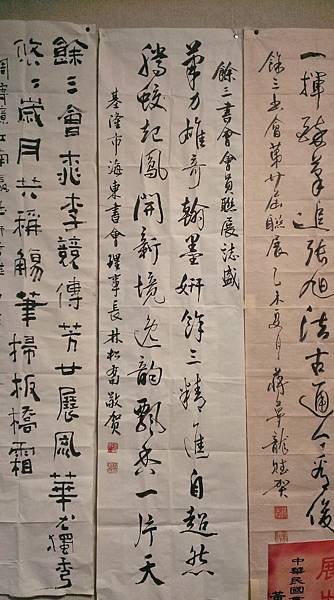 一揮醉筆追張旭法古通今有後
餘三書會第廿屆聯展 乙未夏月 蔣夢龍 賀
餘三書會會員聯展誌盛
筆力雄奇翰墨妍餘三精進自超然
騰蛟起鳳開新境逸韻飄香一片天
基隆市海東書會理事長林松喬敬賀
餘三會桃李競傳芳廿展風華獨秀
悠悠歲月共稱觴筆掃板橋霜
展
中華民國
黃